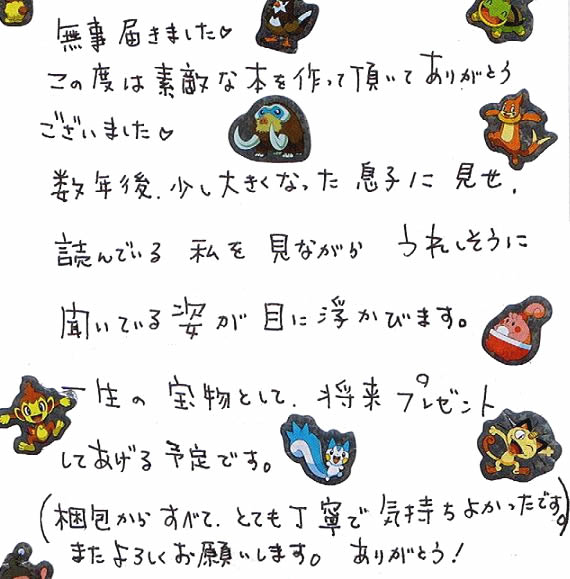 無事届きました♡
この度は素敵な本を作って頂いてありがとう
ございました♡
数年後、少し大きくなった息子に見せ、
読んでいる私を見ながらうれしそうに
聞いている姿が目に浮かびます。
一生の宝物として、将来プレゼント
してあげる予定です。
(梱包からすべて、とても丁寧で気持ちよかったです。)
またよろしくお願いします。ありがとう!